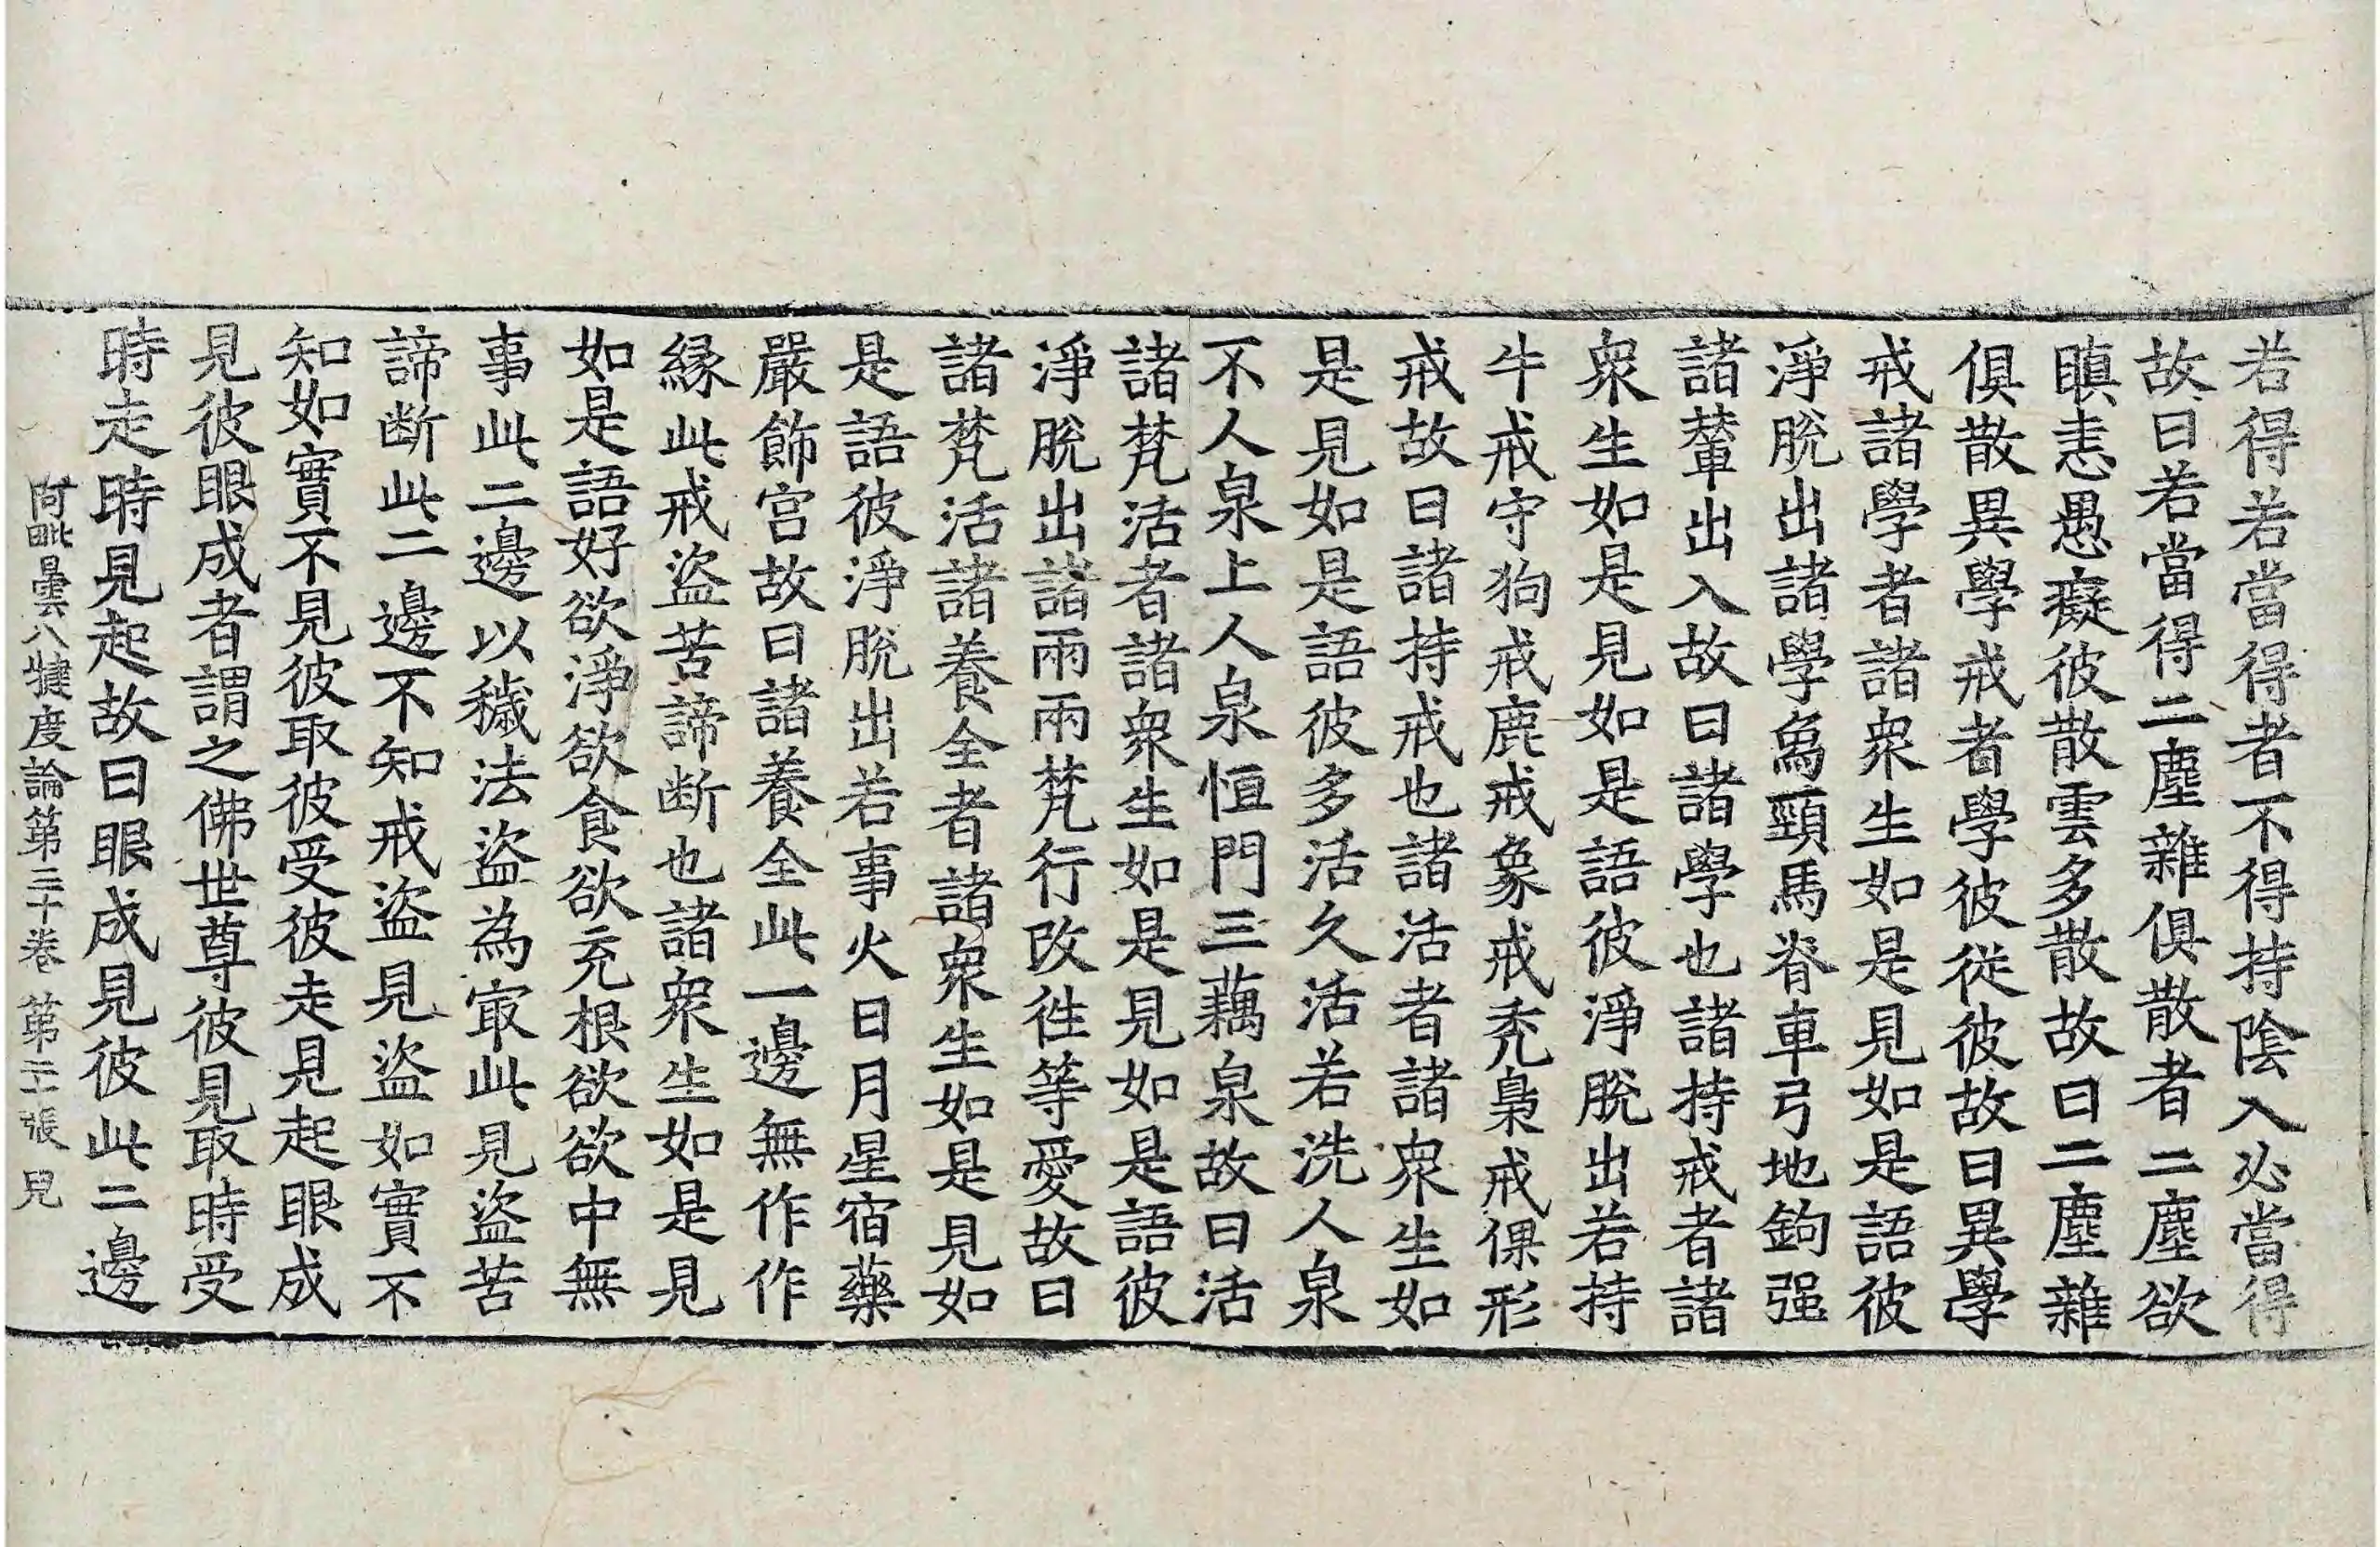 若得若當得者不得持陰入必當得
故曰若當得二塵雜俱散者二塵欲
瞋恚愚癡彼散雲多散故曰二塵雜
俱散異學戒者學彼從彼故曰異學
戒諸學者諸衆生如是見如是語彼
淨脫出諸學象頸馬脊車弓地鉤强
諸輦出入故曰諸學也諸持戒者諸
衆生如是見如是語彼淨脫出若持
牛戒守狗戒鹿戒象戒禿梟戒倮形
戒故曰諸持戒也諸活者諸衆生如
是見如是語彼多活久活若洗人泉
不人泉上人泉恒門三藕泉故曰活
諸梵活者諸衆生如是見如是語彼
淨脫出諸兩兩梵行改徃等愛故曰
諸梵活諸養全者諸衆生如是見如
是語彼淨脫出若事火日月星宿藥
嚴飾宮故曰諸養全此一邊無作作
緣此戒盜苦諦断也諸衆生如是見
如是語好欲淨欲食欲充根欲欲中無
事此二邊以穢法盜為㝡此見盜苦
諦断此二邊不知戒盜見盜如實不
知如實不見彼取彼受彼走見起眼成
見彼眼成者謂之佛世尊彼見取時受
時走時見起故曰眼成見彼此二邊
阿毗曇八犍度論第三十卷 第二十張 兒